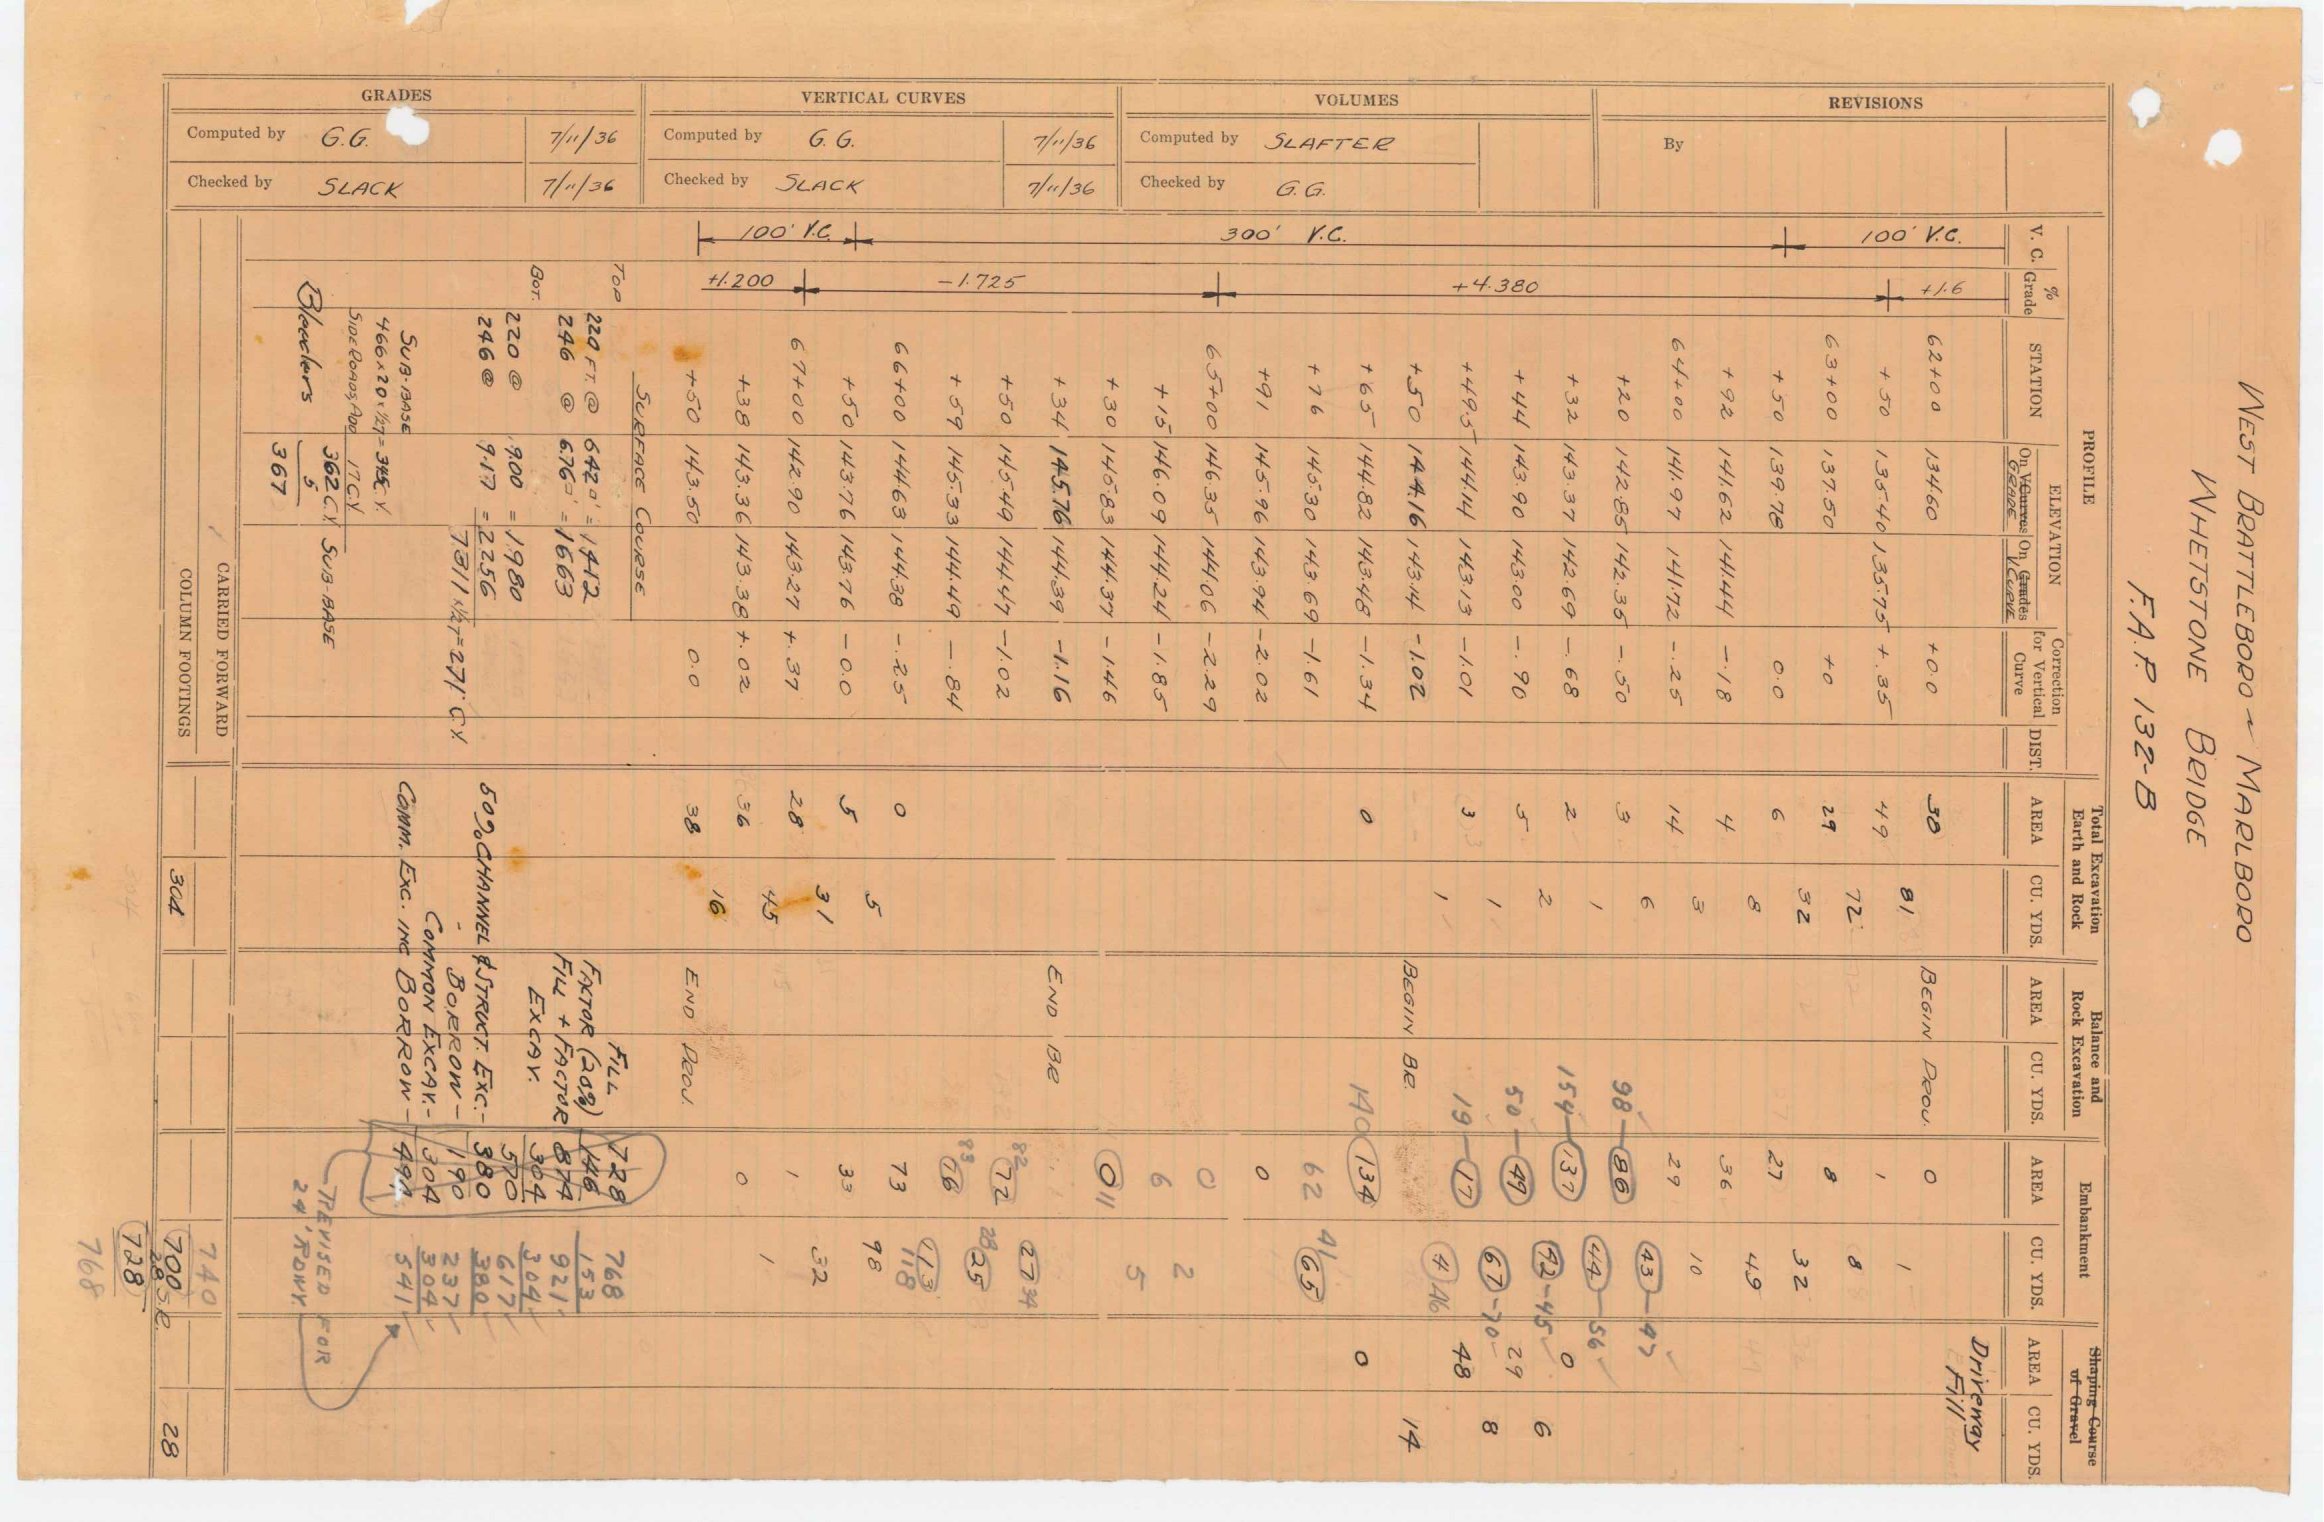 WEST BRATTLEBORO ~ MARLBORO
WHETSTONE BRIDGE
F.A.P. 132-B
GRADES
Computed by G.G. 7/11/36
Checked by SLACK 7/11/36
VERTICAL CURVES
Computed by G.G. 7/11/36
Checked by SLACK 7/11/36
VOLUMES
Computed by SLAFTER
Checked by G.G.
REVISIONS
By
PROFILE
V. C. % Grade STATION ELEVATION On V Curves GRADE On Grades V. CURVE Correction for Vertical Curve DIST.
Total Excavation Earth and Rock AREA CU. YDS.
Balance and Rock Excavation AREA CU. YDS.
Embankment AREA CU. YDS.
Shaping Course of Gravel AREA CU. YDS.
Driveway Fill
100' V.C. 300' V.C. 100' V.C.
+1.200 -1.725 +4.380 +1.6
62+00 134.60 +0.0 30 BEGIN PROJ. 0
81 1
+50 135.40 135.75 +.35 49 1
72 8
63+00 137.50 +0 29 8
32 32
+50 139.78 0.0 6 27
8 49
+92 141.62 141.44 -.18 4 36
3 10
64+00 141.97 141.72 -.25 14 29
6 43 - 47
+20 142.85 142.35 -.50 3 98 - 86
1 44 - 56
+32 143.37 142.69 -.68 2 154 - 137 0
2 42 - 45 6
+44 143.90 143.00 -.90 5 50 - 49 29
1 67 - 70 8
+49.5 144.14 143.13 -1.01 3 19 - 17 48
1 4 46
+50 144.16 143.14 -1.02 BEGIN BR. 14
+65 144.82 143.48 -1.34 0 140 134 0
+76 145.30 143.69 -1.61 62 41 65
+91 145.96 143.94 -2.02 0
65+00 146.35 144.06 -2.29 0
2
+15 146.09 144.24 -1.85 6
5
+30 145.83 144.37 -1.46 0 11
+34 145.76 144.39 -1.16 END BR
27 34
+50 145.49 144.47 -1.02 82 72
28 25
+59 145.33 144.49 -.84 83 76
113 118
66+00 144.63 144.38 -.25 0 73
5 98
+50 143.76 143.76 -0.0 5 33
31 32
67+00 142.90 143.27 +.37 28 1
45 1
+38 143.36 143.38 +.02 36 0
16
+50 143.50 0.0 38 END PROJ.
SURFACE COURSE
TOP 220 FT. @ 6.42 □' = 1412
246 @ 6.76 □' = 1663
BOT. 220 @ 9.00 = 1980
246 @ 9.17 = 2256
7311 x 1/27 = 271 C.Y.
SUB-BASE
466 x 20 x 1/27 = 345 C.Y.
SIDE ROADS, ADD 17 C.Y.
362 C.Y. SUB-BASE
Bleeders 5
367
FILL 728 768
FACTOR (20%) 146 153
FILL + FACTOR 874 921
EXCAV. 304 304
570 617
50% CHANNEL & STRUCT. EXC. - 380 380
BORROW - 190 237
COMMON EXCAV. - 304 304
COMM. EXC. INC BORROW - 494 541
REVISED FOR
24' RDWY.
CARRIED FORWARD
COLUMN FOOTINGS 304 740 700 28
28 S.R.
728
768